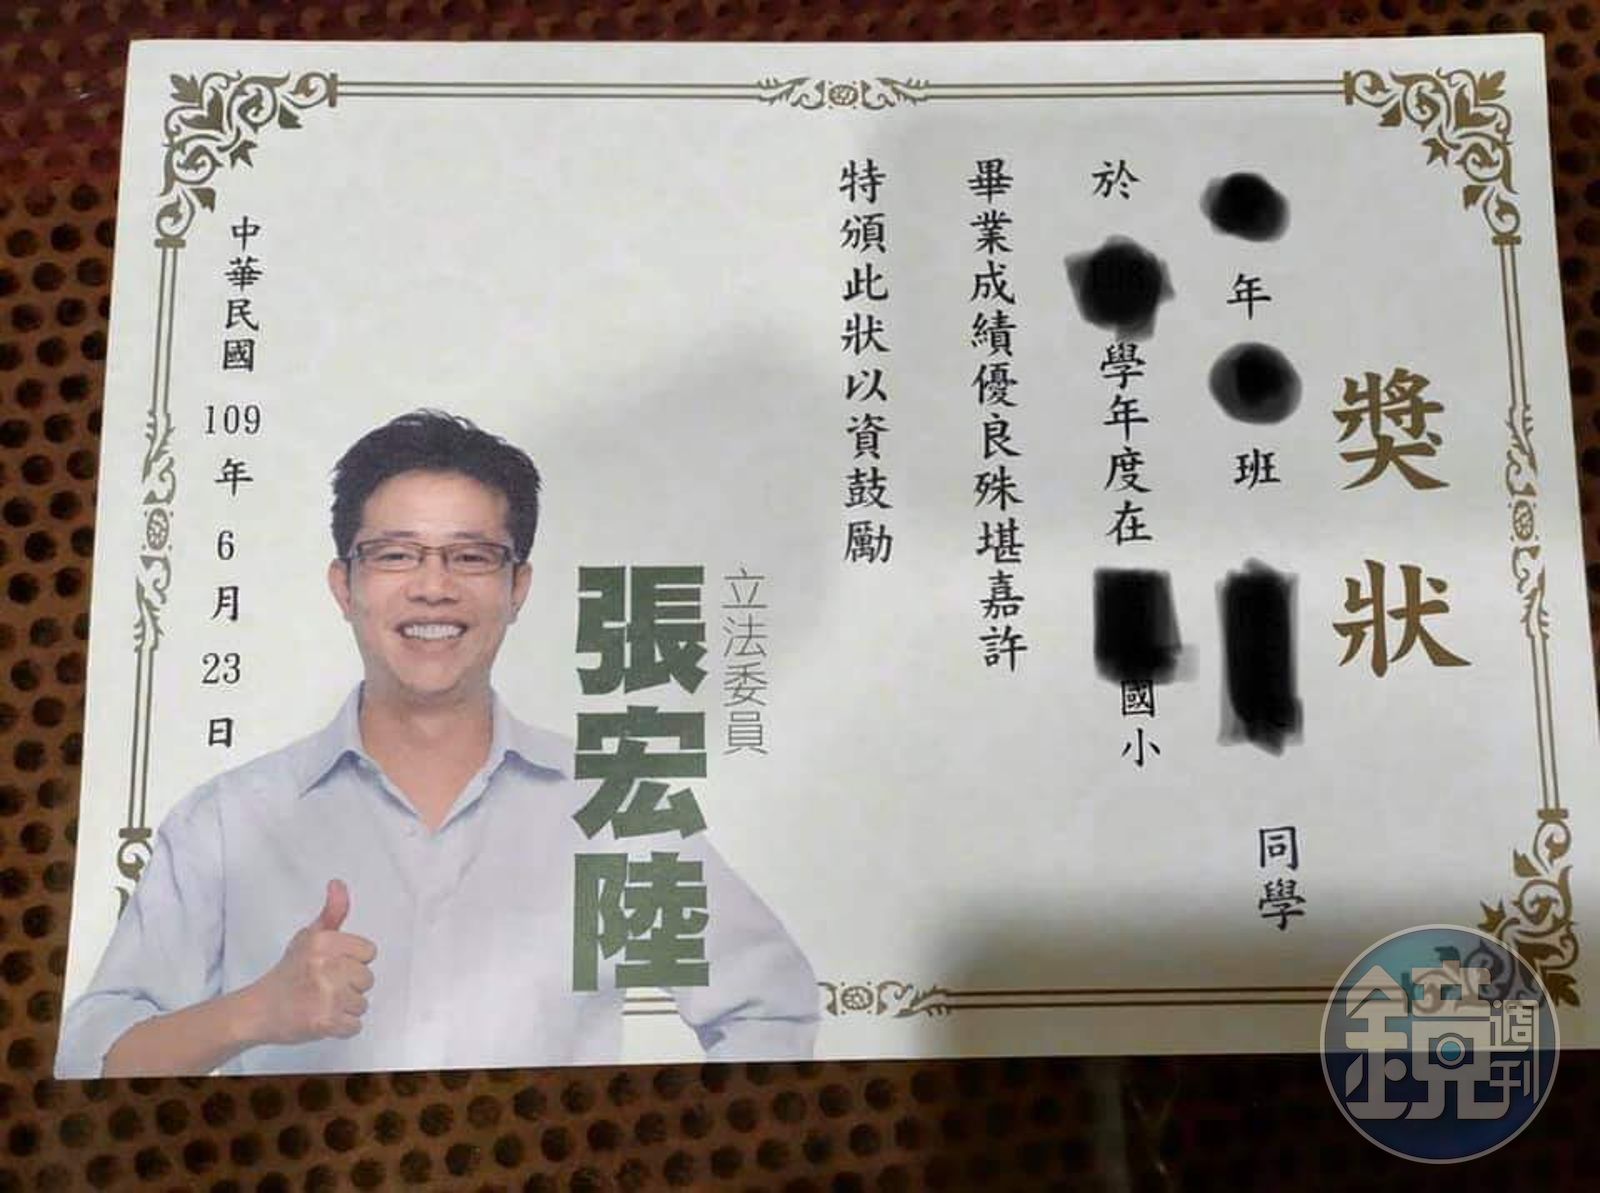 獎狀
年 班 同學
於 學年度在 國小
畢業成績優良殊堪嘉許
特頒此狀以資鼓勵
立法委員
張宏陸
中華民國 109 年 6 月 23 日
鏡週刊